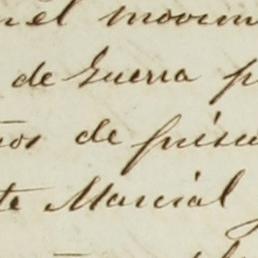 el movim
de Guerra p
ños de prisi
te Marcial